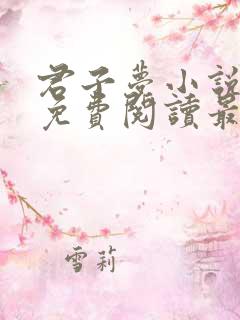 君子夢小說
免費閱讀最
雪莉